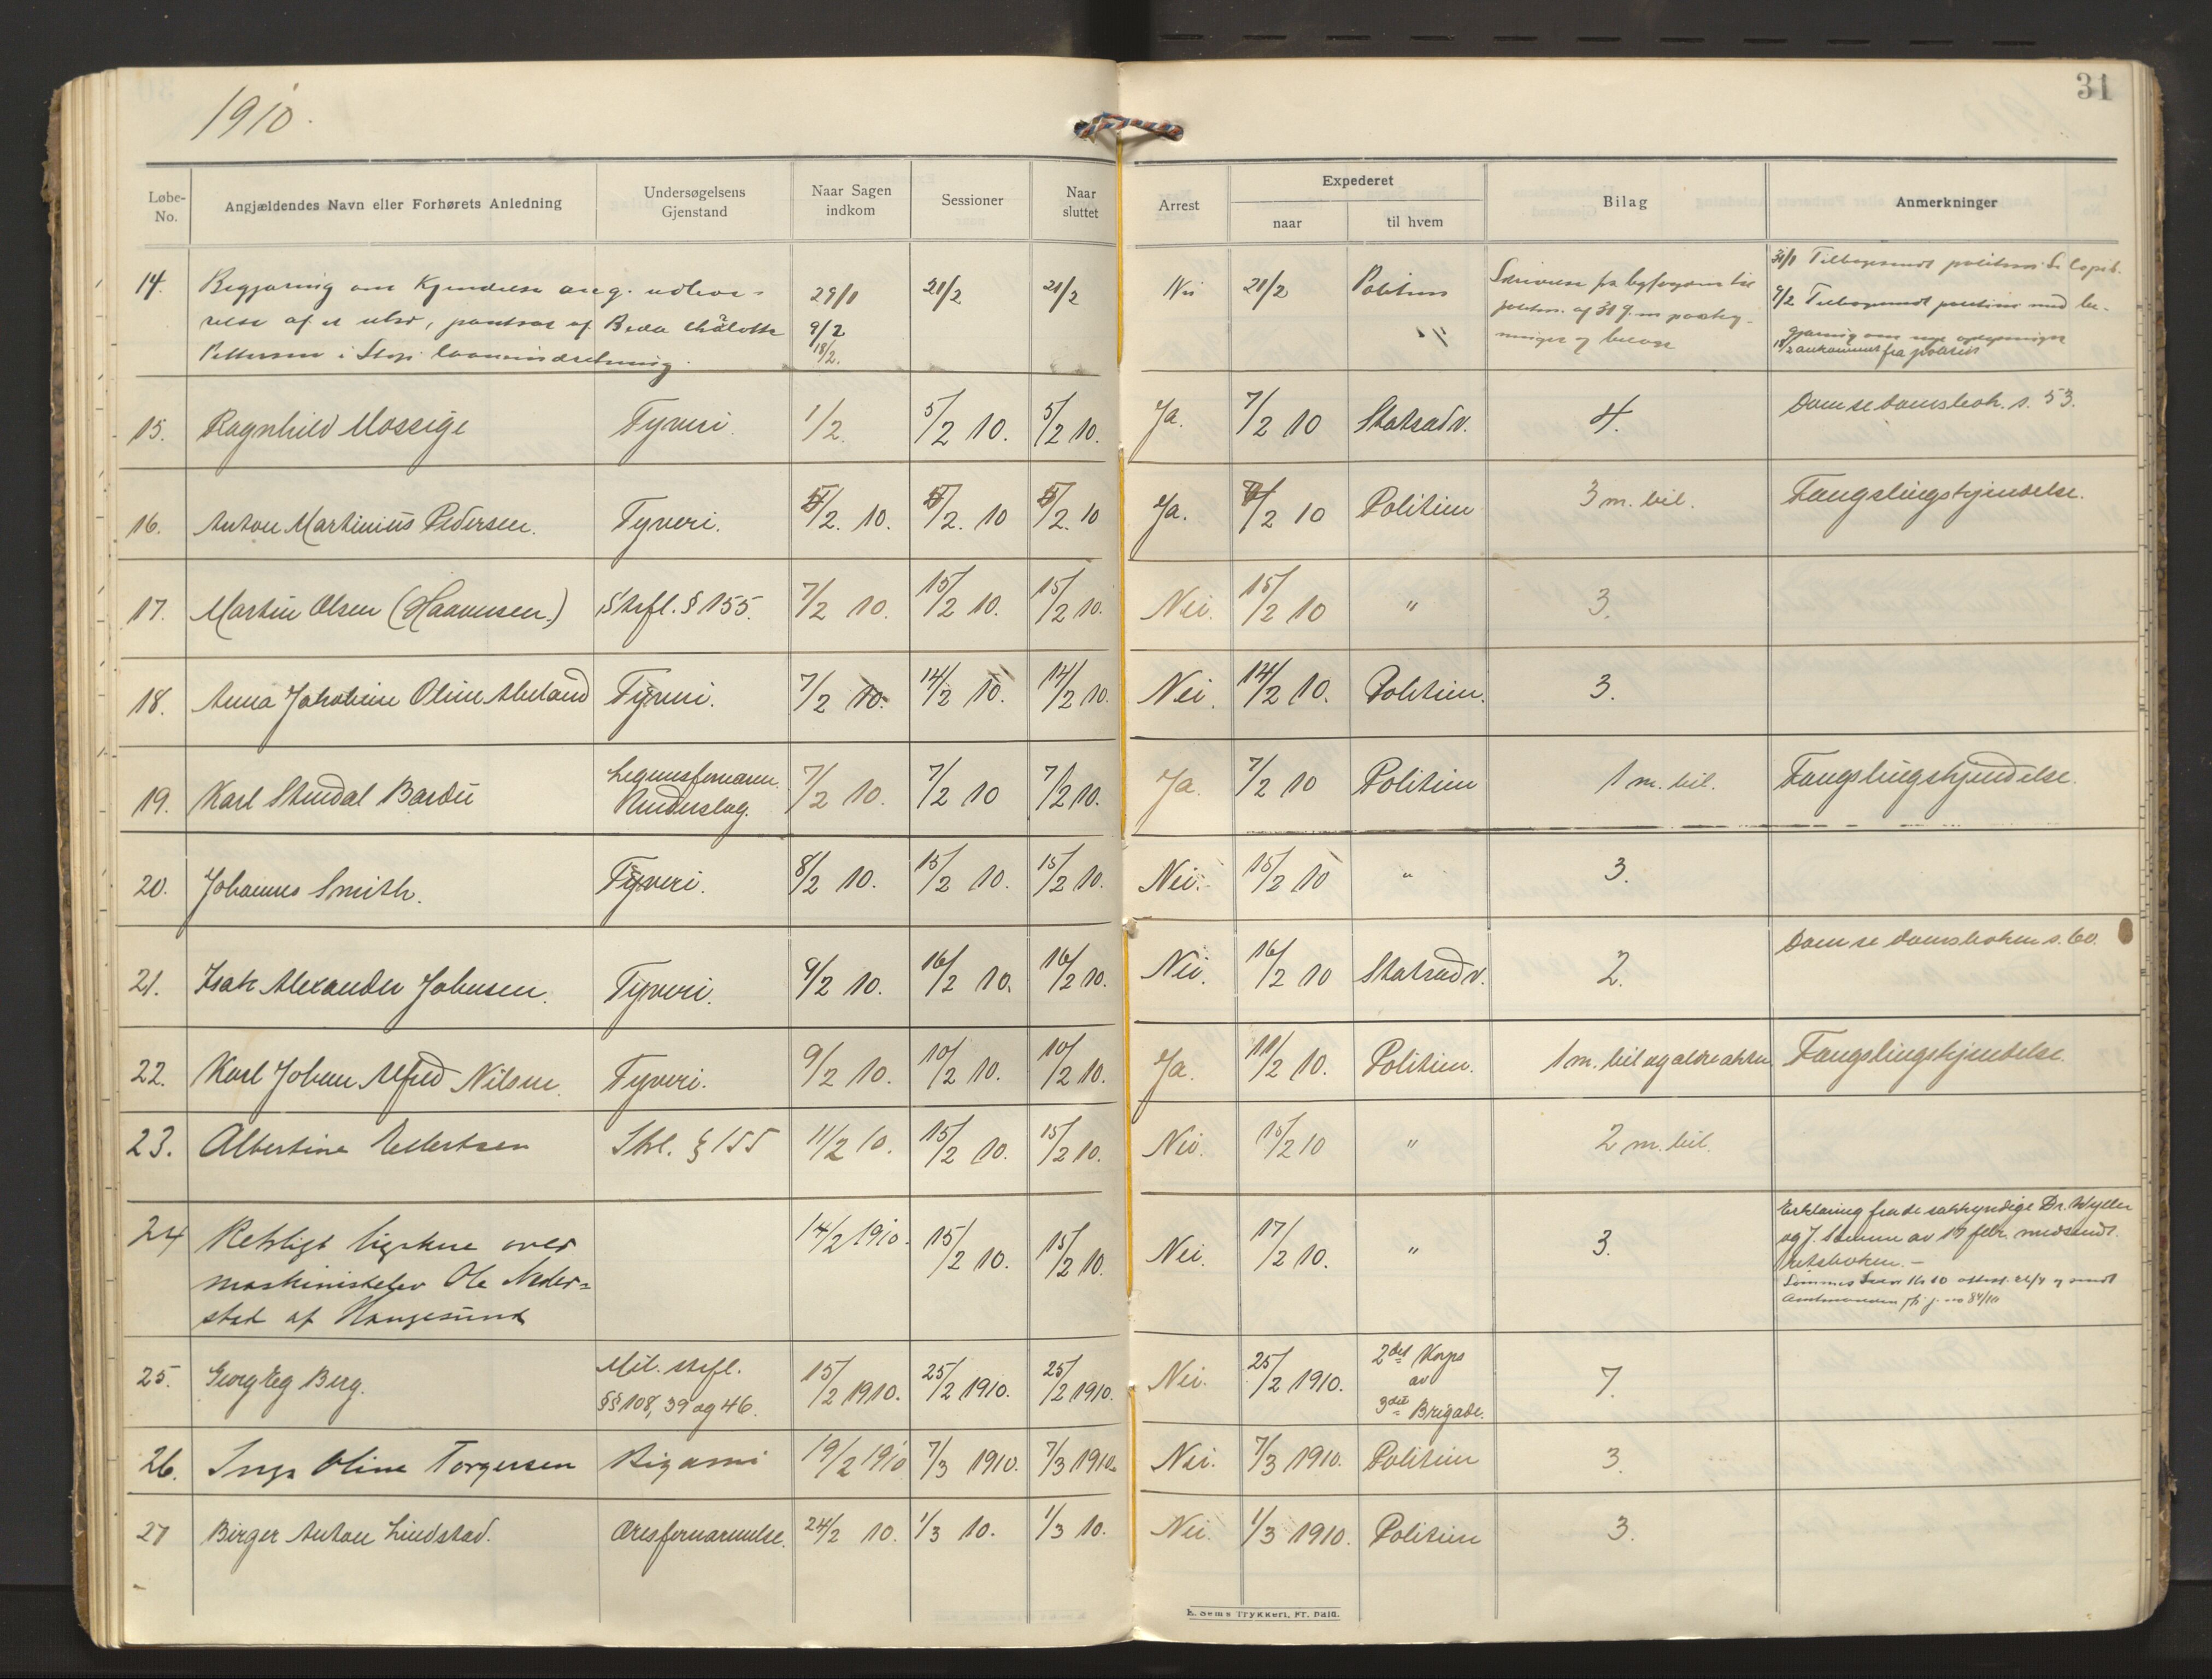 1910.
31
Løbe-No. Angjældendes Navn eller Forhørets Anledning Undersøgelsens Gjenstand Naar Sagen indkom Sessioner Naar sluttet Arrest Expederet naar til hvem Bilag Anmerkninger
14. Begjæring om Kjendelse ang. udleve- 29/1 21/2 21/2 Nei 21/2 Politiet
relse af et uhr, pantsat af Beda Charlotte 9/2
Pettersen i laaneindretning. 18/2.
Skrivelse fra byfogden til
politim. af
31/1 Tilbagesendt politiet
9/2 Tilbagesendt politiet med be-
gjæring om nye oplysninger
18/2 ankommet fra politiet
15. Ragnhild Mossige Tyveri. 1/2. 5/2 10. 5/2 10. Ja. 7/2 10 Statsadv. 4. Dom se domsbok. s. 53.
16. Anton Martinius Pedersen. Tyveri. 5/2. 10. 5/2. 10 5/2. 10 Ja. /2 10 Politiem 3 m. bil. Fængslingskjendelse.
17. Martin Olsen (Haavesen.) Strfl. § 155. 7/2 10. 15/2 10. 15/2 10. Nei. 15/2 10 " 3.
18. Anna Jakobine Oline 7/2 10. 14/2 10. 14/2 10. Tyveri. Nei. 14/2 10. Politiem. 3.
19. Karl Stendal Bardu Legemsfornærm. Underslag. 7/2 10. 7/2 10 7/2 10. Ja. 7/2 10 Politiem 1 m. bil. Fængslingskjendelse.
20. Johannes Smith. Tyveri. 8/2 10. 15/2 10. 15/2 10. Nei. 15/2 10 " 3.
21. Isak Alexander Johnsen. Tyveri. 9/2 10. 16/2 10. 16/2 10. Nei. 16/2 10 Statsadv. 2. Dom se domsboken s. 60.
22. Karl Johan Alfred Nilsen. Tyveri. 9/2 10. 10/2 10. 10/2 10. Ja. 11/2 10. Politiem. 1 m. bil og ældre akter Fængslingskjendelse.
23. Albertine Eilertsen Strl. § 155 11/2 10. 15/2 10. 15/2 10. Nei. 15/2 10 " 2 m. bil.
24 Retsligt ligskue over 14/2 1910. 15/2 10. 15/2 10. Nei. 17/2 10. " 3.
maskinistelev Ole Neder=
stad af Haugesund
Erklæring fra de sakkyndige Dr. Wyller
og J. av 17 febr. medsendt
retsboken. –
Amtmanden j. no 84/10
25. Georg Eeg Berg. Mil. strfl. §§ 108, 39 og 46. 15/2 1910. 25/2 1910. 25/2 1910. Nei. 25/2 1910. 2det Korps av 3die Brigade. 7.
26. Inga Oline Torgersen Bigami 19/2 1910 7/3 1910. 7/3 1910. Nei. 7/3 1910. Politiem 3.
27 Birger Anton Lindstad. Æresfornærmelse. 24/2 10. 1/3 10. 1/3 10. Nei. 1/3 1910. Politiem 3.
E. Sems Trykkeri, Fr. hald.